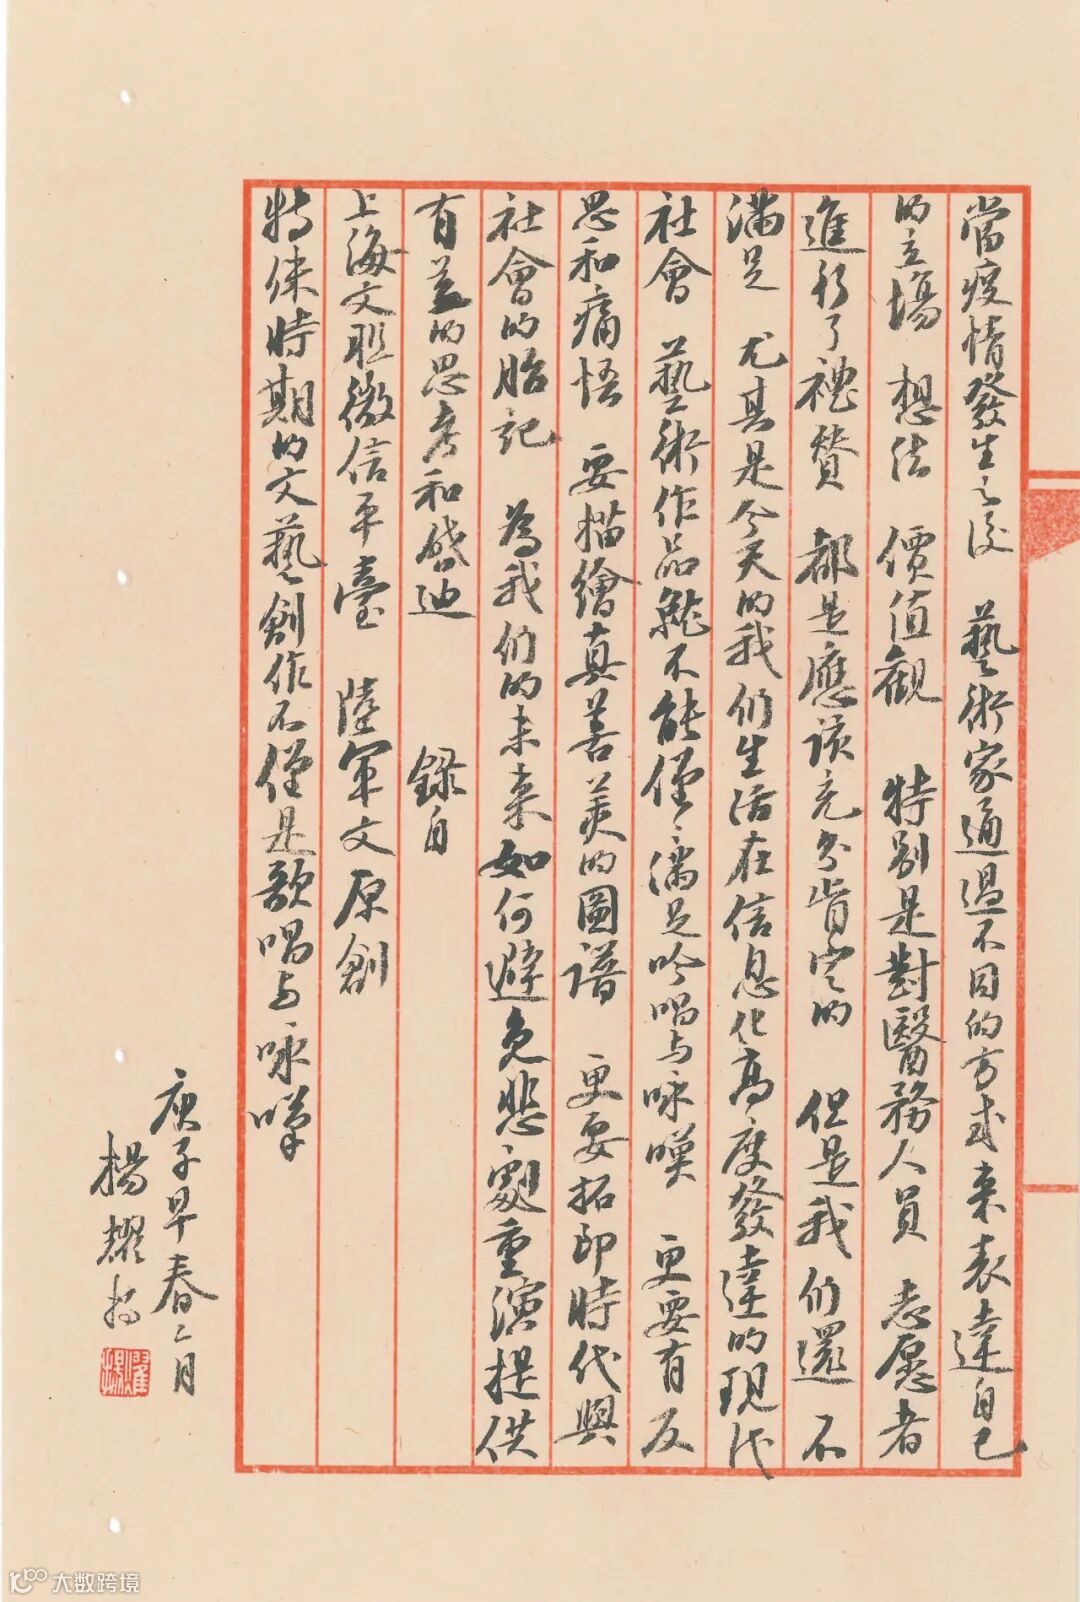 當疫情發生之後 藝術家通過不同的方式來表達自己
的立場 想法 價值觀 特別是對醫務人員 志愿者
進行了禮贊 都是應該充分肯定的 但是我们還不
滿足 尤其是今天的我们生活在信息化高度發達的現代
社會 藝術作品就不能僅滿足吟唱与咏嘆 更要有反
思和痛悟 要描繪真善美的圖譜 更要拓印時代與
社會的胎記 為我们的未来如何避免悲劇重演提供
有益的思考和啓迪 録自
上海文联微信平臺 陸軍文原創
特殊時期的文藝創作不僅是歌唱与咏嘆
庚子早春二月
楊耀
大数跨境